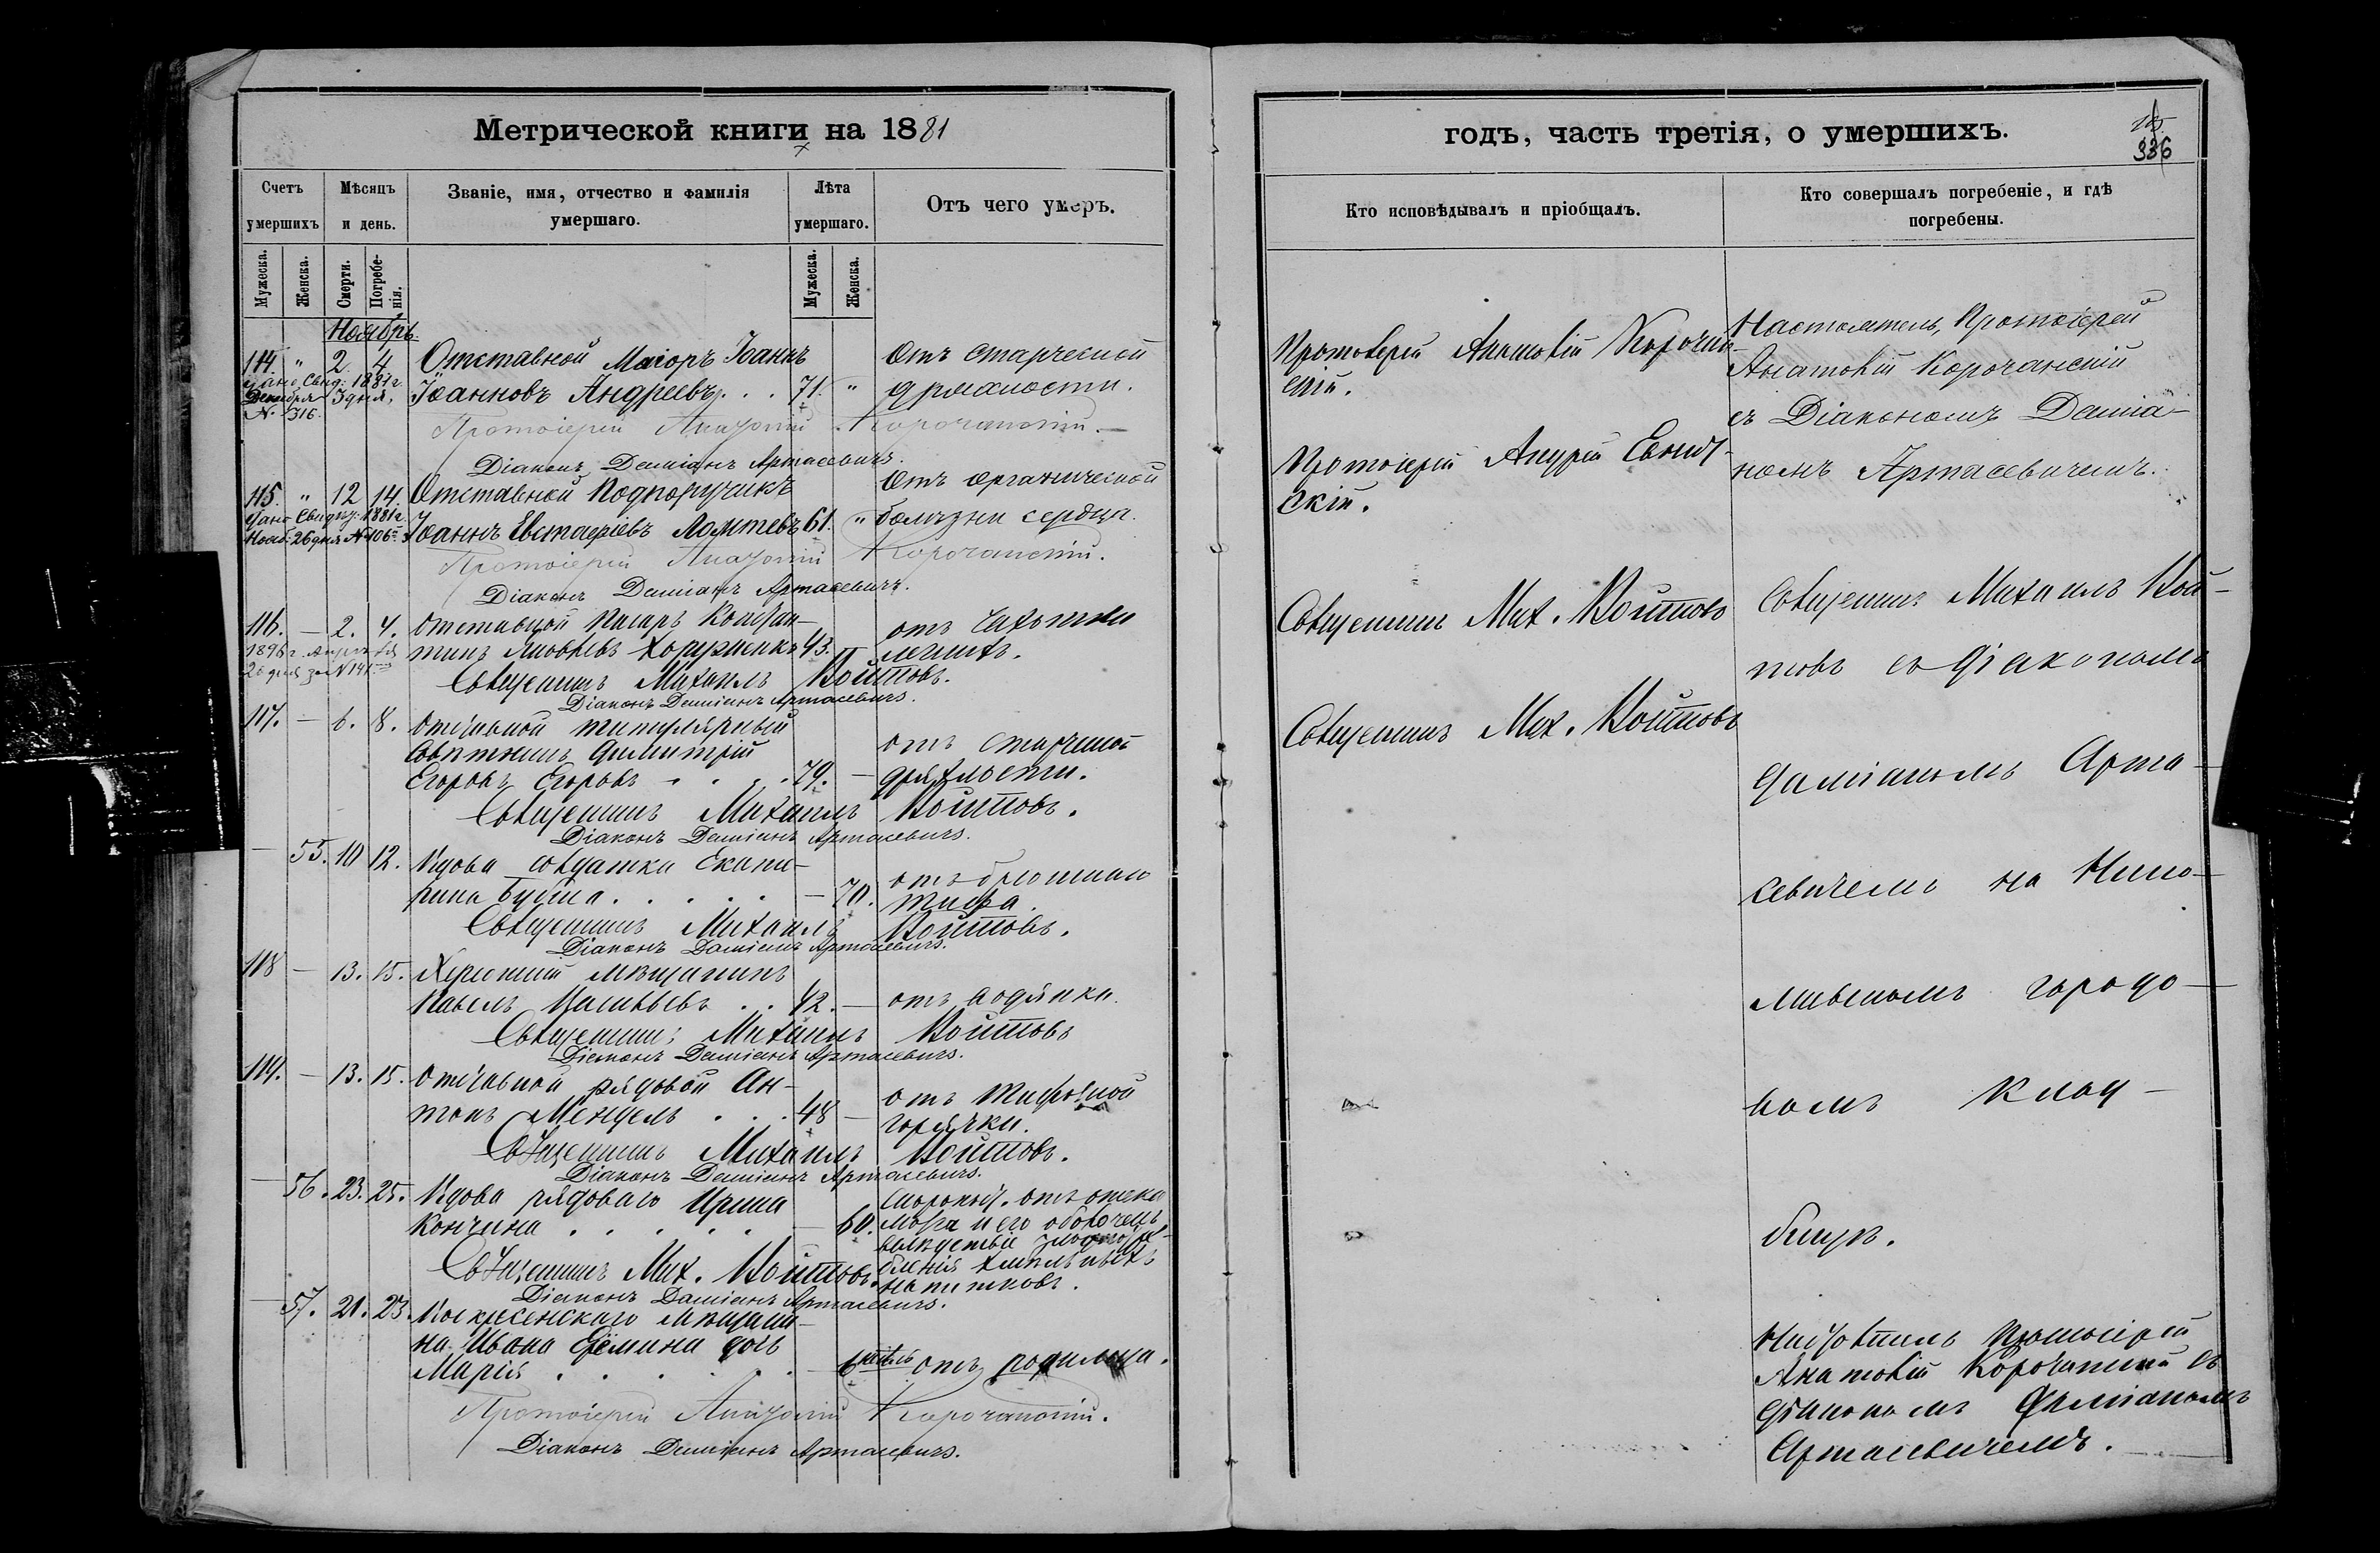 Метрической книги на 1881
Счетъ умершихъ
Мѣсяцъ и день.
Званіе, имя, отчество и фамилія умершаго.
Лѣта умершаго.
Отъ чего умеръ.
Мужеска.
Женска.
Смерти.
Погребенія.
Мужеска.
Женска.
Ноябрь.
114. " 2 4 Отставной Маіоръ Іоаннъ Отъ старческой
дано Свид: 1881 г. Іоанновъ Андреевъ . . . 71. " дряхлости.
Декабря 3 дня,
№ 316.
Протоіерей Анатолій Корочанскій.
Діаконъ Даміанъ Артасевичъ.
115. " 12 14 Отставной Подпоручикъ Отъ органической
Дано Свид: 1881 г. Іоаннъ Евстафіевъ 61. " болѣзни сердца.
Нояб: 26 дня № 106
Протоіерей Анатолій Корочанскій.
Діаконъ Даміанъ Артасевичъ.
116. — 2. 4. отставной писарь Констан-
1896 г. Апрѣля тинъ Яковлевъ 43. отъ чахотки
26 дня за № 141 легкихъ.
Священникъ Михаилъ Войтовъ.
Діаконъ Даміанъ Артасевичъ.
117. — 6. 8. отставной титулярный
совѣтникъ Димитрій отъ старческой
Егоровъ Егоровъ . . . . 79. — дряхлости.
Священникъ Михаилъ Войтовъ.
Діаконъ Даміанъ Артасевичъ.
— 55. 10 12. Вдова солдатка Екате-
рина . . . . . — 70. отъ брюшнаго тифа.
Священникъ Михаилъ Войтовъ.
Діаконъ Даміанъ Артасевичъ.
118 — 13. 15. Херсонскій мѣщанинъ
Павелъ . . 42. — отъ водянки.
Священникъ Михаилъ Войтовъ
Діаконъ Даміанъ Артасевичъ.
119. — 13. 15. отставной рядовой Ан-
тонъ Мендель . . . 48 — отъ тифозной горячки.
Священникъ Михаилъ Войтовъ.
Діаконъ Даміанъ Артасевичъ.
— 56. 23. 25. Вдова рядоваго Ирина
Кончина . . . . . — 60. отъ отека
мозга и его оболочекъ
вслѣдствіе злоупотре-
бленія хмѣльныхъ
напитковъ.
Священникъ Мих. Войтовъ.
Діаконъ Даміанъ Артасевичъ.
— 57. 21. 23. Воскресенскаго мѣщани-
на Ивана Ерёмина дочь
Марія . . . . . . 6 отъ родимца.
Протоіерей Анатолій Корочанскій.
Діаконъ Даміанъ Артасевичъ.
годъ, часть третія, о умершихъ.
336
Кто исповѣдывалъ и пріобщалъ.
Кто совершалъ погребеніе, и гдѣ погребены.
Протоіерей Анатолій Корочан-
скій.
Протоіерей Андрей
скій.
Священникъ Мих. Войтовъ
Священникъ Мих. Войтовъ
Настоятель, Протоіерей
Анатолій Корочанскій
съ Діакономъ Даміа-
номъ Артасевичемъ.
Священникъ Михаилъ Вой-
товъ съ діакономъ
Даміаномъ Арта-
севичемъ на Нико-
лаевскомъ городо-
вомъ клад-
бищѣ.
Протоіерей
Анатолій Корочанскій съ
діакономъ Даміаномъ
Артасевичемъ.